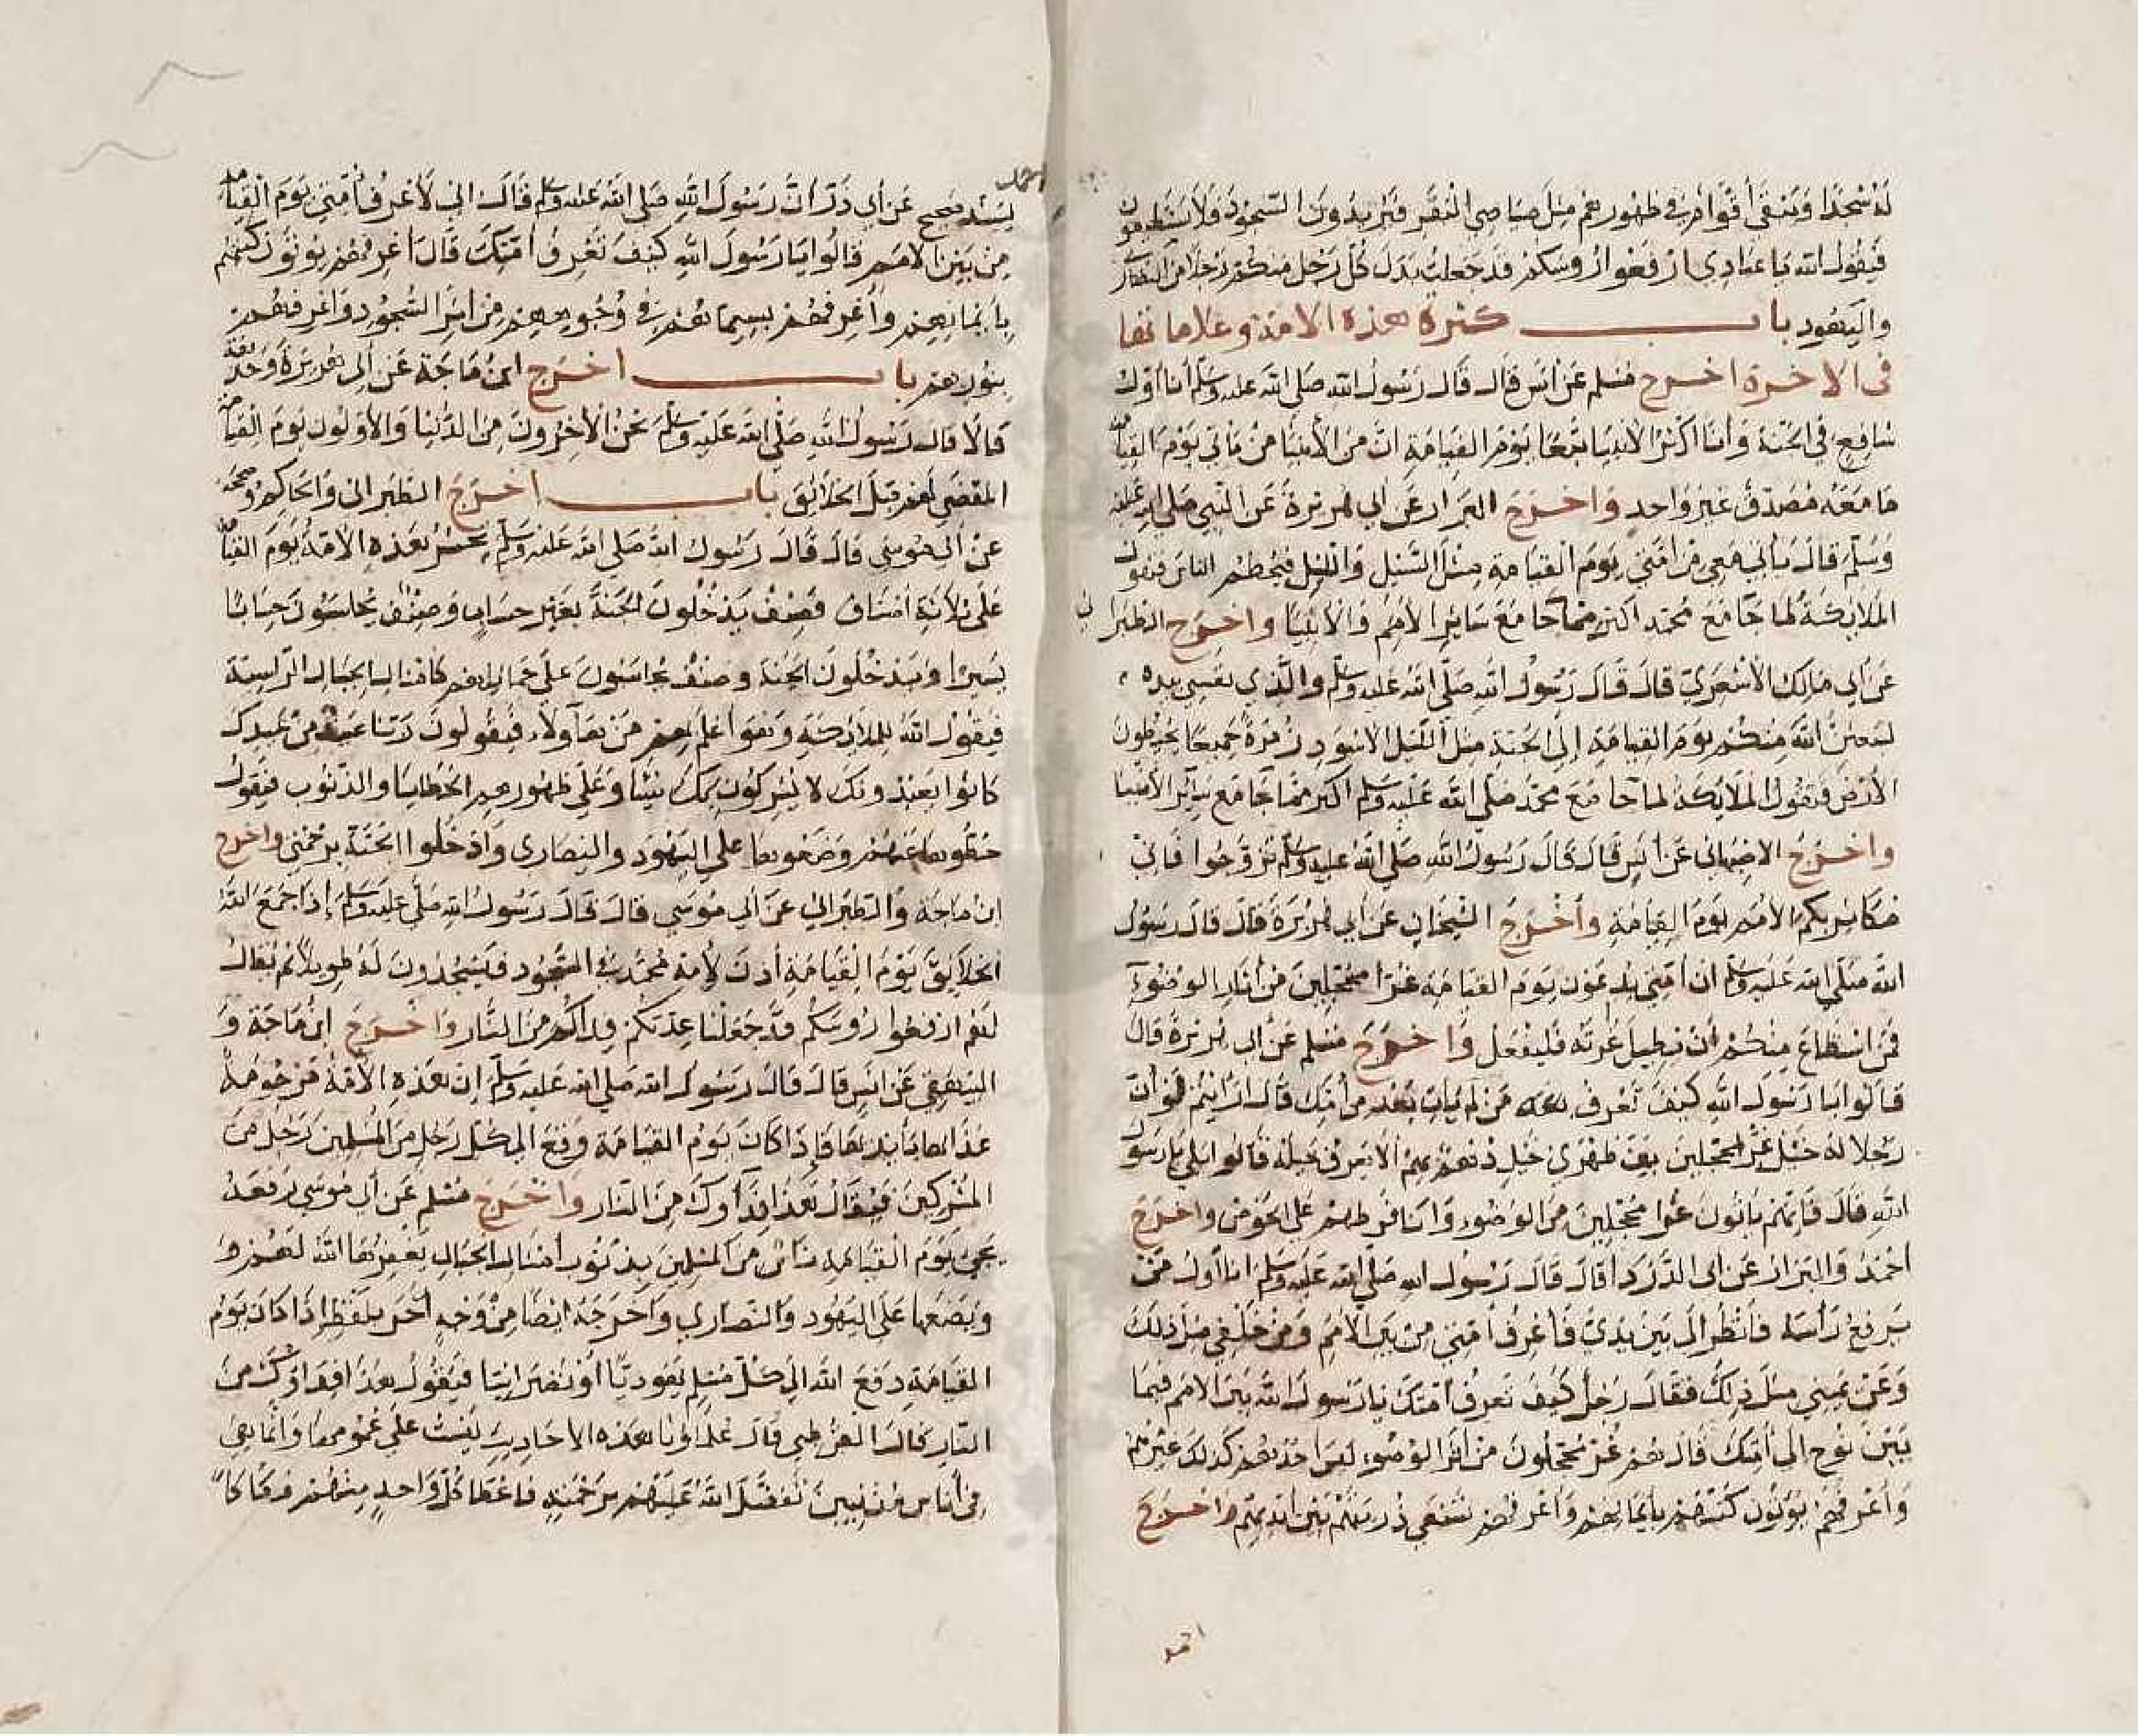 له سجدا وتبقى أقوام في ظهورهم مثل صياصي البقر فيريدون السجود فلا يستطيعون
فيقول الله يا عبادي ارفعوا رؤسكم فقد جعلت بدل كل رجل منكم رجلا من النصارى
واليهود باب كثرة هذه الامة وعلاماتها
في الاخرة اخرج مسلم عن انس قال قال رسول الله صلى الله عليه وسلم أنا أول
شافع في الجنة وأنا أكثر الانبيا تبعا يوم القيامة ان من الأنبيا من يأتي يوم القيامة
ما معه مصدق غير واحد واخرج البزار عن ابي هريرة عن النبي صلى الله عليه
وسلم قال يأتي معي من امتي يوم القيامة مثل السيل والليل فيحطم الناس فتقول
الملائكة لما جا مع محمد اكثر مما جا مع سائر الأمم والأنبيا واخرج الطبراني
عن ابي مالك الأشعري قال قال رسول الله صلى الله عليه وسلم والذي نفسي بيده
ليبعثن الله منكم يوم القيامة إلى الجنة مثل الليل الاسود زمرة جميعا يحيطون
الأرض فتقول الملائكة لما جا مع محمد صلى الله عليه وسلم اكثر مما جا مع سائر الأنبيا
واخرج الاصبهاني عن أنس قال قال رسول الله صلى الله عليه وسلم تزوجوا فاني
مكاثر بكم الأمم يوم القيامة وأخرج الشيخان عن ابي هريرة قال قال رسول
الله صلى الله عليه وسلم ان امتي يدعون يوم القيامة غرا محجلين من آثار الوضوء
فمن استطاع منكم أن يطيل غرته فليفعل واخرج مسلم عن أبي هريرة قال
قالوا يا رسول الله كيف تعرف من لم يأت بعد من أمتك قال ارأيتم لو أن
رجلا له خيل غر محجلين بين ظهري خيل دهم بهم ألا يعرف خيله قالوا بلى يا رسول
الله قال فإنهم يأتون غرا محجلين من الوضوء وأنا فرطهم على الحوض واخرج
أحمد والبزار عن ابي الدردا قال قال رسول الله صلى الله عليه وسلم انا أول من
يرفع رأسه فأنظر الى بين يدي فأعرف أمتي من بين الأمم ومن خلفي مثل ذلك
وعن يميني مثل ذلك فقال رجل كيف تعرف أمتك يا رسول الله بين الامم فيما
بين نوح إلى أمتك قال هم غر محجلون من أثر الوضوء ليس احد هم كذلك غيرهم
وأعرفهم يؤتون كتبهم بأيمانهم وأعرفهم تسعى ذريتهم بين أيديهم واخرج
احمد
بسند صحيح عن أبي ذر أن رسول الله صلى الله عليه وسلم قال اني لأعرف أمتي يوم القيامة
من بين الأمم قالوا يا رسول الله كيف تعرف أمتك قال أعرفهم يؤتون كتبهم
بأيمانهم وأعرفهم بسيماهم في وجوههم من اثر السجود وأعرفهم
بنورهم باب اخرج ابن ماجة عن ابي هريرة وحذيفة
قالا قال رسول الله صلى الله عليه وسلم نحن الآخرون من الدنيا والأولون يوم القيامة
المقضي لهم قبل الخلائق باب اخرج الطبراني والحاكم وصححه
عن ابي موسى قال قال رسول الله صلى الله عليه وسلم يحشر هذه الأمة يوم القيامة
على ثلاثة أصناف فصنف يدخلون الجنة بغير حساب وصنف يحاسبون حسابا
يسيرا ويدخلون الجنة وصنف يحاسبون على كامثال الجبال الراسية
فيقول الله للملائكة وهو أعلم بهم من هآولاء فيقولون ربنا عبيد من عبيدك
كانوا يعبدونك لا يشركون بك شيئا وعلى ظهورهم الخطايا والذنوب فيقول
حطوها عنهم وضعوها على اليهود والنصارى وادخلوا الجنة برحمتي واخرج
ابن ماجة والطبراني عن ابي موسى قال قال رسول الله صلى عليه وسلم إذا جمع الله
الخلائق يوم القيامة أذن لأمة محمد في السجود فيسجدون له طويلا ثم يقال
لهم ارفعوا رؤسكم قد جعلنا عدتكم فداكم من النار واخرج ابن ماجة و
البيهقي عن أنس قال قال رسول الله صلى الله عليه وسلم ان هذه الأمة مرحومة
عذابها بأيديها فإذا كان يوم القيامة دفع الى كل رجل من المسلمين رجل من
المشركين فيقال هذا فداوك من النار واخرج مسلم عن أبي موسى يرفعه
يجيء يوم القيامة ناس من المسلمين بذنوب أمثال الجبال يغفرها الله لهم و
يضعها على اليهود والنصارى وأخرجه ايضا من وجه آخر بلفظ اذا كان يوم
القيامة دفع الله الى كل مسلم يهوديا أو نصرانيا فيقول هذا فداؤك من
النار قال القرطبي قال علماؤنا هذه الأحاديث ليست على عمومها وانما هي
في أناس مذنبين تفضل الله عليهم برحمته فاعطا كل واحد منهم فكاكا
احمد